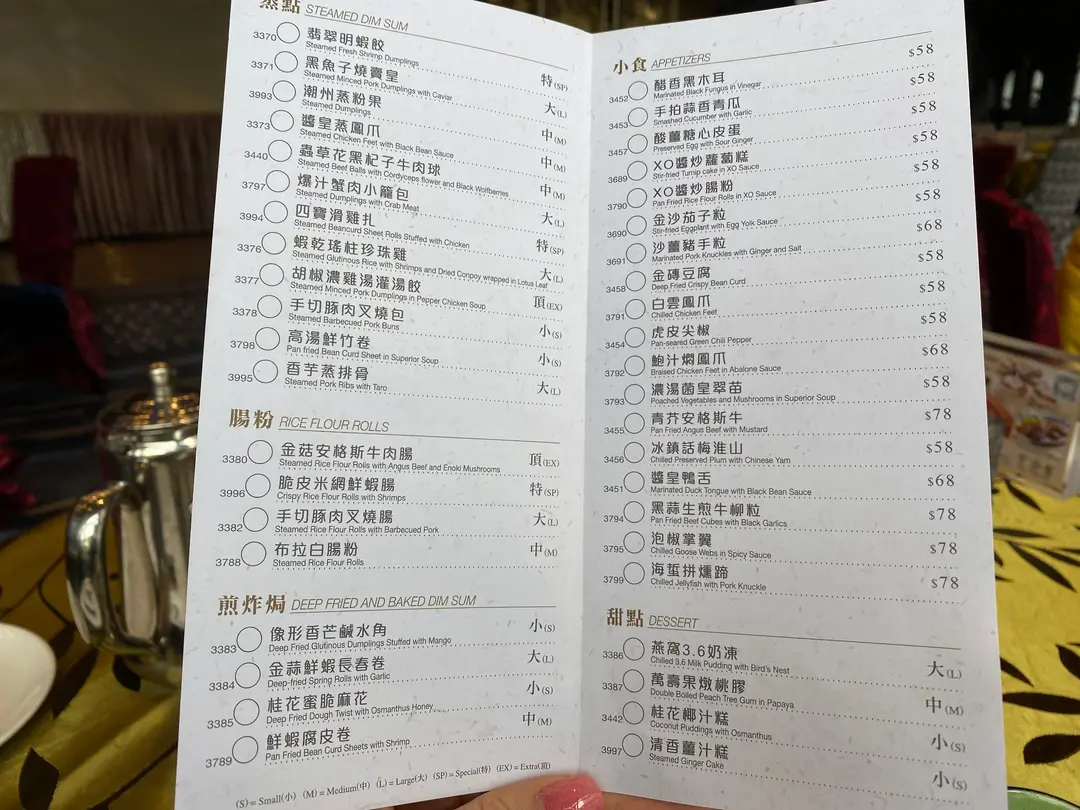 蒸點 STEAMED DIM SUM
3370 翡翠明蝦餃 特(SP)
Steamed Fresh Shrimp Dumplings
3371 黑魚子燒賣皇 大(L)
Steamed Minced Pork Dumplings with Caviar
3993 潮州蒸粉果 中(M)
Steamed Dumplings
3373 醬皇蒸鳳爪 中(M)
Steamed Chicken Feet with Black Bean Sauce
3440 蟲草花黑杞子牛肉球 中(M)
Steamed Beef Balls with Cordyceps flower and Black Wolfberries
3797 爆汁蟹肉小籠包 大(L)
Steamed Dumplings with Crab Meat
3994 四寶滑雞扎 特(SP)
Steamed Beancurd Sheet Rolls Stuffed with Chicken
3376 蝦乾瑤柱珍珠雞 大(L)
Steamed Glutinous Rice with Shrimps and Dried Conpoy wrapped in Lotus Leaf
3377 胡椒濃雞湯灌湯餃 頂(EX)
Steamed Minced Pork Dumplings in Pepper Chicken Soup
3378 手切豚肉叉燒包 小(S)
Steamed Barbecued Pork Buns
3798 高湯鮮竹卷 小(S)
Pan fried Bean Curd Sheet in Superior Soup
3995 香芋蒸排骨 大(L)
Steamed Pork Ribs with Taro
腸粉 RICE FLOUR ROLLS
3380 金菇安格斯牛肉腸 頂(EX)
Steamed Rice Flour Rolls with Angus Beef and Enoki Mushrooms
3996 脆皮米網鮮蝦腸 特(SP)
Crispy Rice Flour Rolls with Shrimps
3382 手切豚肉叉燒腸 大(L)
Steamed Rice Flour Rolls with Barbecued Pork
3788 布拉白腸粉 中(M)
Steamed Rice Flour Rolls
煎炸焗 DEEP FRIED AND BAKED DIM SUM
3383 像形香芒鹹水角 小(S)
Deep Fried Glutinous Dumplings Stuffed with Mango
3384 金蒜鮮蝦長春卷 大(L)
Deep-fried Spring Rolls with Garlic
3385 桂花蜜脆麻花 小(S)
Deep Fried Dough Twist with Osmanthus Honey
3789 鮮蝦腐皮卷 中(M)
Pan Fried Bean Curd Sheets with Shrimp
(S)=Small(小) (M)=Medium(中) (L)=Large(大) (SP)=Special(特) (EX)=Extra(頂)
小食 APPETIZERS
3452 醋香黑木耳 $58
Marinated Black Fungus in Vinegar
3453 手拍蒜香青瓜 $58
Smashed Cucumber with Garlic
3457 酸薑糖心皮蛋 $58
Preserved Egg with Sour Ginger
3689 XO醬炒蘿蔔糕 $58
Stir-fried Turnip cake in XO Sauce
3790 XO醬炒腸粉 $58
Pan Fried Rice Flour Rolls in XO Sauce
3690 金沙茄子粒 $58
Stir-fried Eggplant with Egg Yolk Sauce
3691 沙薑豬手粒 $68
Marinated Pork Knuckles with Ginger and Salt
3458 金磚豆腐 $58
Deep Fried Crispy Bean Curd
3791 白雲鳳爪 $58
Chilled Chicken Feet
3454 虎皮尖椒 $58
Pan-seared Green Chili Pepper
3792 鮑汁燜鳳爪 $68
Braised Chicken Feet in Abalone Sauce
3793 濃湯菌皇翠苗 $58
Poached Vegetables and Mushrooms in Superior Soup
3455 青芥安格斯牛 $78
Pan Fried Angus Beef with Mustard
3456 冰鎮話梅淮山 $58
Chilled Preserved Plum with Chinese Yam
3451 醬皇鴨舌 $68
Marinated Duck Tongue with Black Bean Sauce
3794 黑蒜生煎牛柳粒 $78
Pan Fried Beef Cubes with Black Garlics
3795 泡椒掌翼 $78
Chilled Goose Webs in Spicy Sauce
3799 海蜇拼燻蹄 $78
Chilled Jellyfish with Pork Knuckle
甜點 DESSERT
3386 燕窩3.6奶凍 大(L)
Chilled 3.6 Milk Pudding with Bird's Nest
3387 萬壽果燉桃膠 中(M)
Double Boiled Peach Tree Gum in Papaya
3442 桂花椰汁糕 小(S)
Coconut Puddings with Osmanthus
3997 清香薑汁糕 小(S)
Steamed Ginger Cake